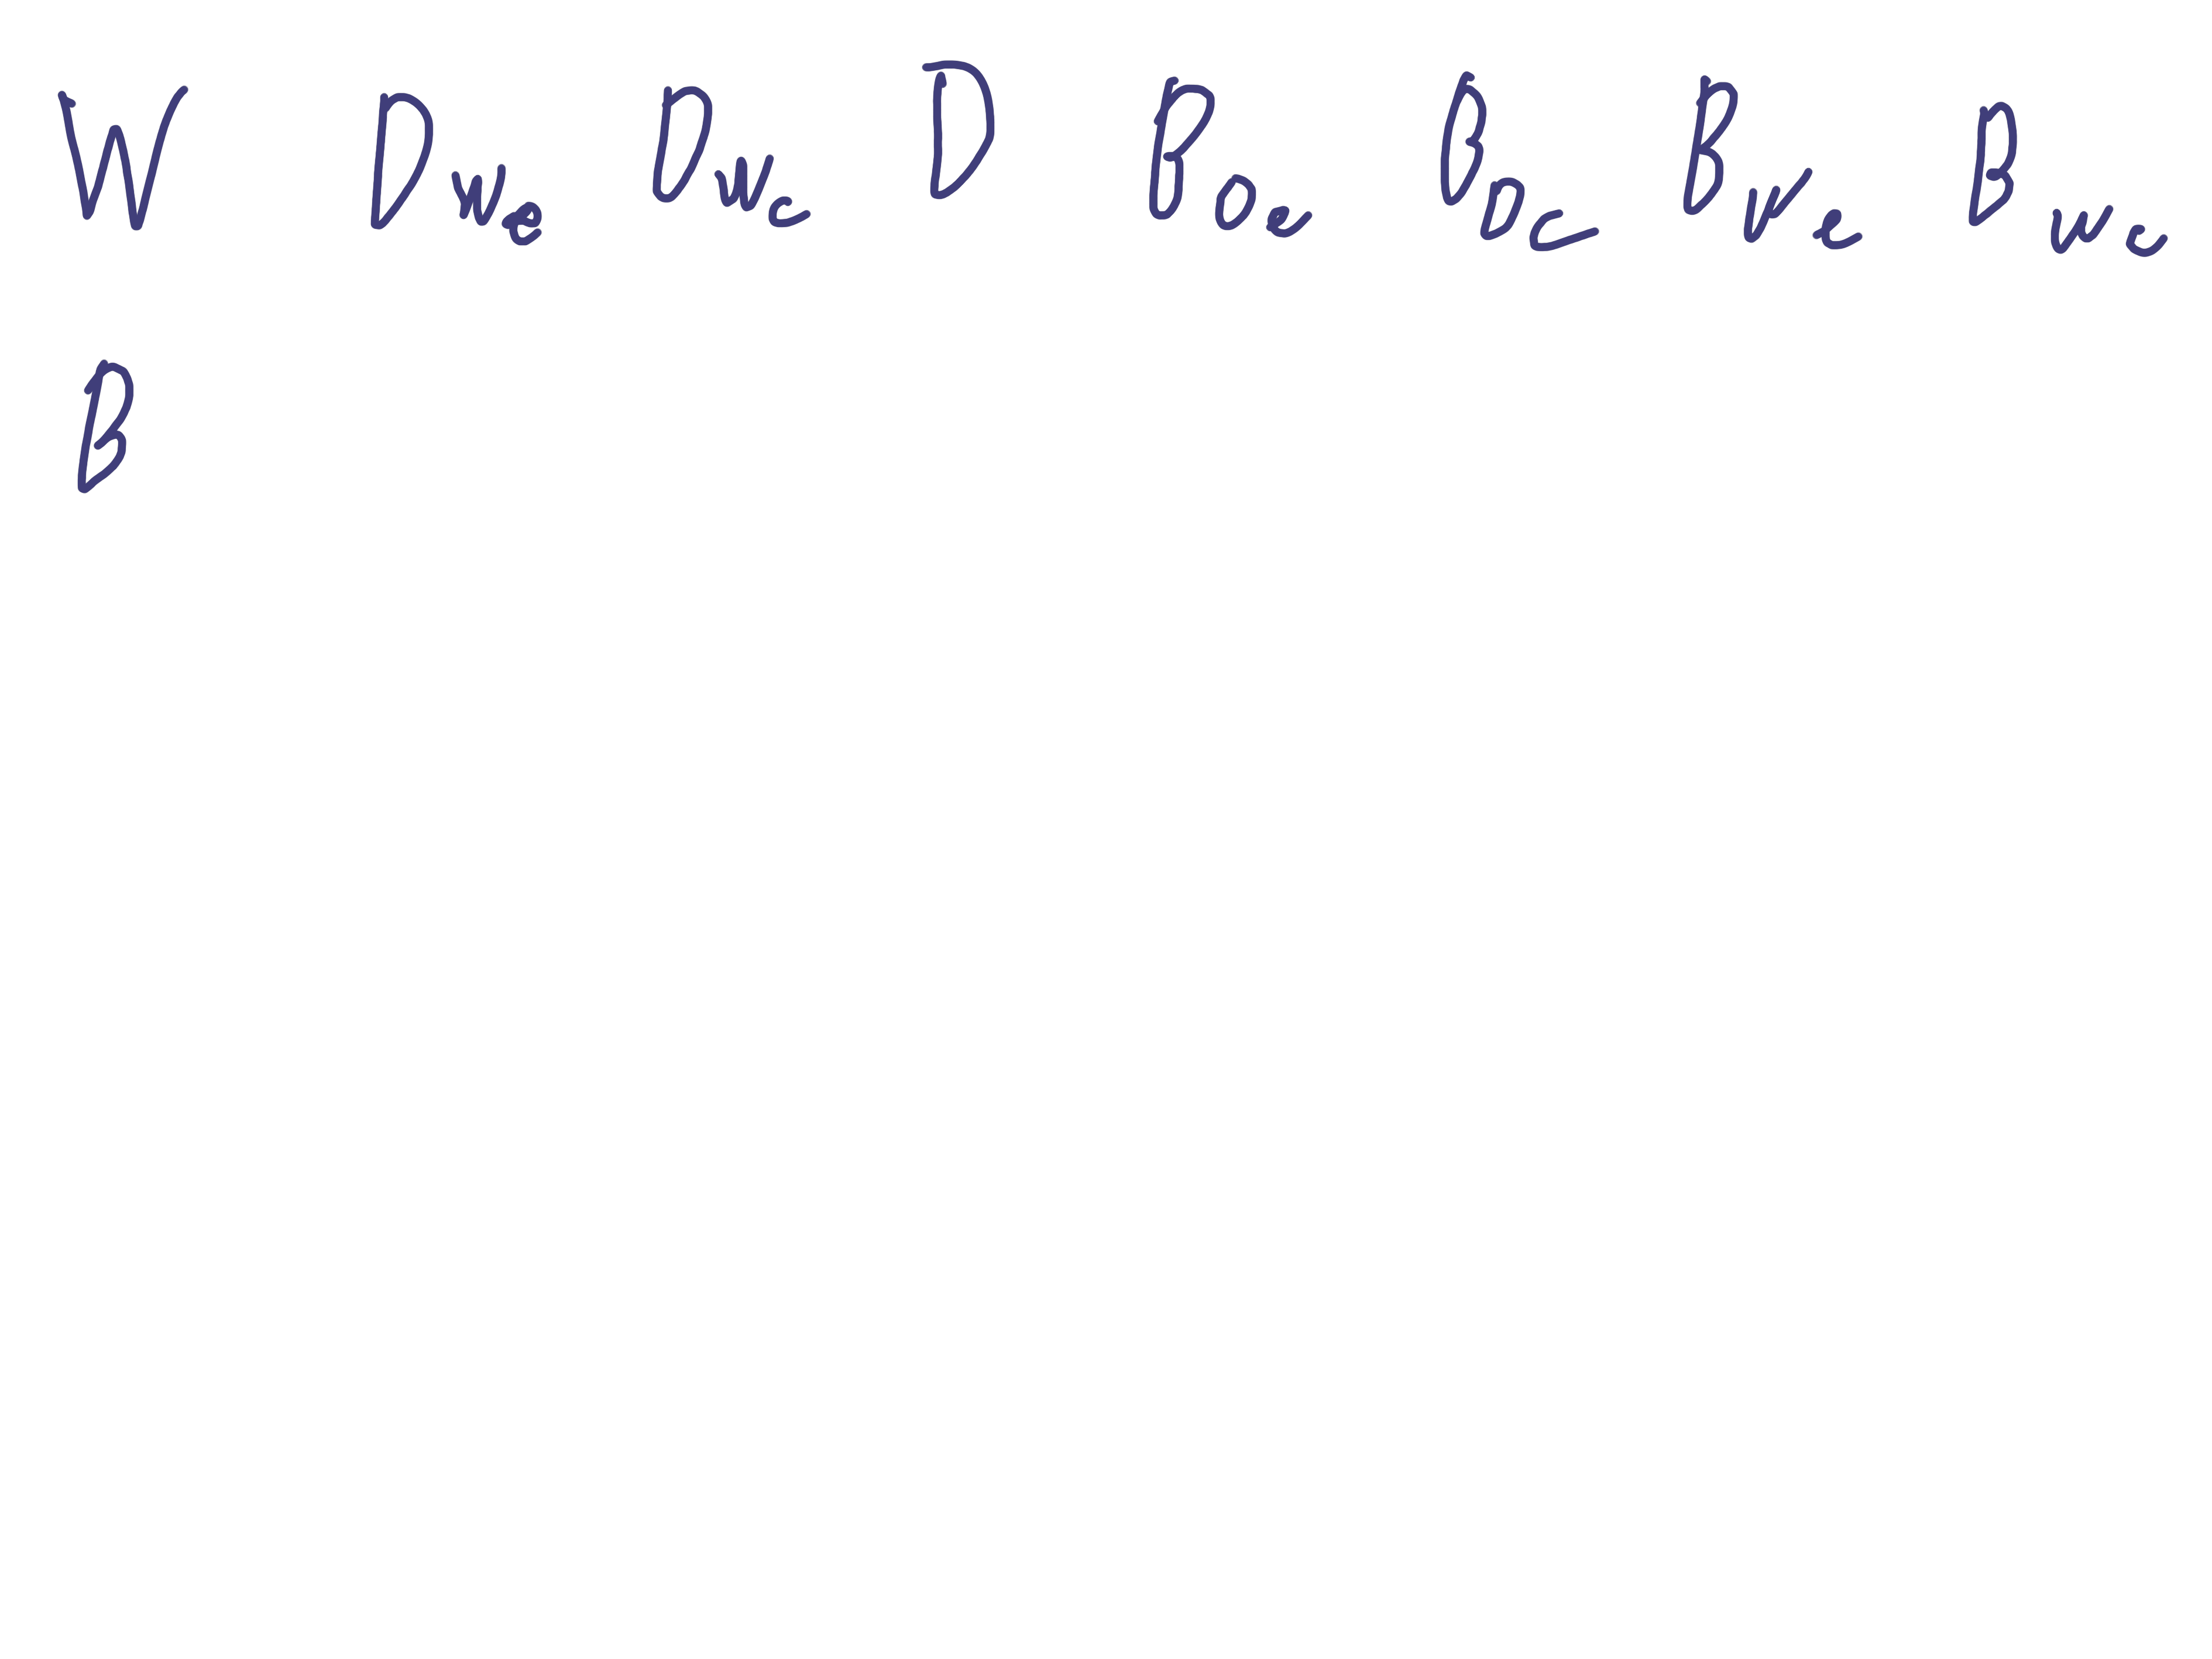 W D_{w_e} D_{w_c} D B_{D_e} B_{D_c} B_{w_e} B_{w_c}
B